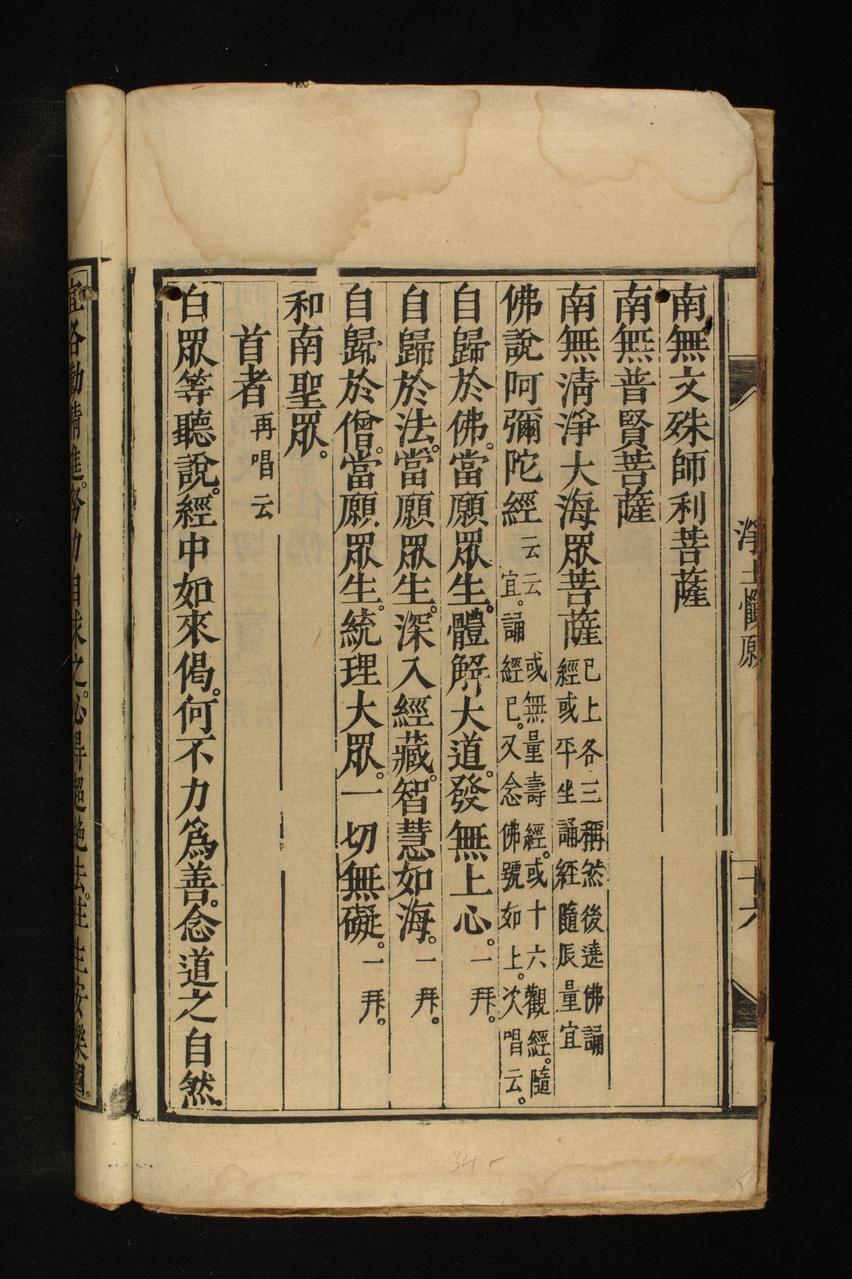 淨土懺願
十六
南無文殊師利菩薩
南無普賢菩薩
南無清淨大海眾菩薩已上各三稱然後遶佛誦經或平坐誦經隨辰量宜
佛說阿彌陀經云云或無量壽經。或十六觀經。隨宜。誦經已。又念佛號如上。次唱云。
自歸於佛。當願眾生。體解大道。發無上心。一拜。
自歸於法。當願眾生。深入經藏。智慧如海。一拜。
自歸於僧。當願眾生。統理大眾。一切無礙。一拜。
和南聖眾。
首者再唱云
白眾等聽說。經中如來偈。何不力為善。念道之自然
宜各勤精進。努力自求之。必得超絕去。往生安樂國。